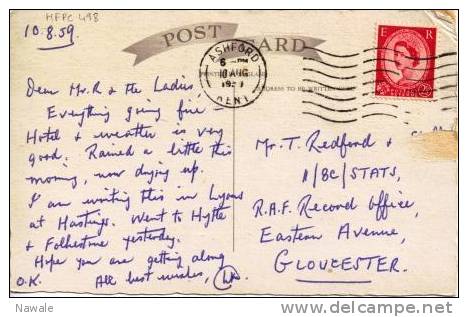 HFPC 498
10.8.59.
POST CARD
ASHFORD
6 - PM
10 AUG
KENT
E R
Dear Mr. R & the Ladies.
Everything going fine
Hotel & weather is very
good. Rained a little this
morning, now drying up.
I am writing this in Lyons
at Hastings. Went to Hythe
& Folkestone yesterday.
Hope you are getting along
O.K. All best wishes,
ADDRESS TO BE WRITTEN
Mr. T. Redford &
11/8C/STATS,
R.A.F. Record Office,
Eastern Avenue,
GLOUCESTER.
Nawale
http://www.delcampe.net